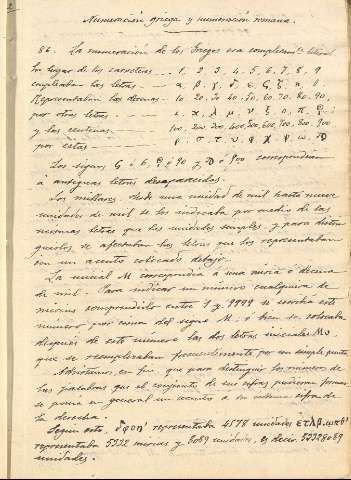 Numeración griega y numeración romana.
86. La numeración de los Griegos era completamte literal
En lugar de los caracteres... 1, 2, 3, 4, 5, 6, 7, 8, 9
empleaban las letras... α, β, γ, δ, ε, ς, ζ, η, θ
Representaban las decenas... 10, 20, 30, 40, 50, 60, 70, 80, 90,
por otras letras... ι, κ, λ, μ, ν, ξ, ο, π, ϙ
y las centenas... 100, 200, 300, 400, 500, 600, 700, 800, 900
por estas... ρ, σ, τ, υ, φ, χ, ψ, ω, ϡ
Los signos ς ó 6, ϙ ó 90 y ϡ ó 900 correspondian
á antiguas letras desaparecidas.
Los millares desde una unidad de mil hasta nueve
unidades de mil se los indicaba por medio de las
mismas letras que las unidades simples, y para distin
guirlos se afectaban las letras que los representaban
con un acento colocado debajo.
La inicial M correspondia á una miria ó decena
de mil. Para indicar un número cualquiera de
mirias comprendido entre 1 y 9999 se escribia este
número por encima del signo M, ó bien se colocaba
después de este número las dos letras iniciales Mυ
que se reemplazaban frecuentemente por un simple punto
Advirtamos, en fin, que para distinguir los números de
las palabras que el conjunto de sus cifras pudieran formar
se ponia en general un acento á su última cifra de
la derecha.
Segun esto, δφοη' representaba 4578 unidades ετλβ.ωπθ'
representaba 5332 mirias y 8089 unidades, es decir, 53328089
unidades.